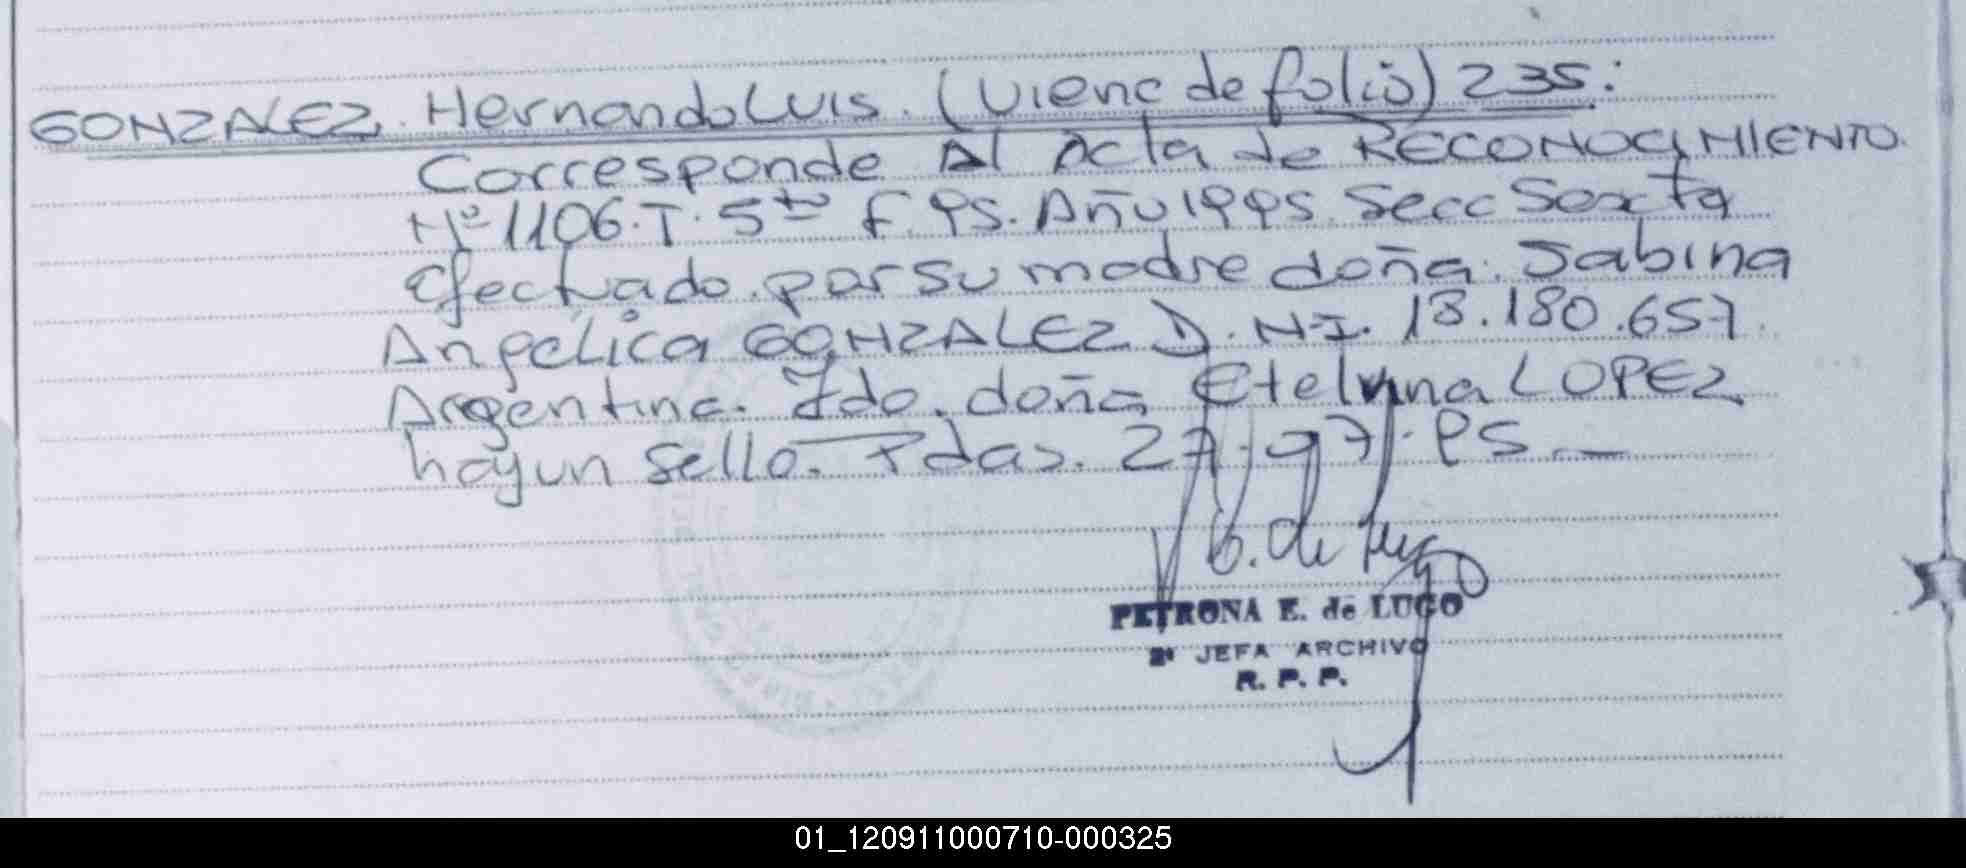 GONZALEZ, Hernando Luis. (Viene de folio) 235:
Corresponde Al Acta de RECONOCIMIENTO
Nº 1106. T. 5to F. 95. Año 1995. Secc Sexta
Efectuado por su madre doña. Sabina
Angélica GONZALEZ D.N.I. 13.180.657
Argentina. Fdo. doña Etelvina LOPEZ
hay un sello. Pdas. 27.97. PS.—
PETRONA E. de LUGO
JEFA ARCHIVO
R. P. P.
01_120911000710-000325